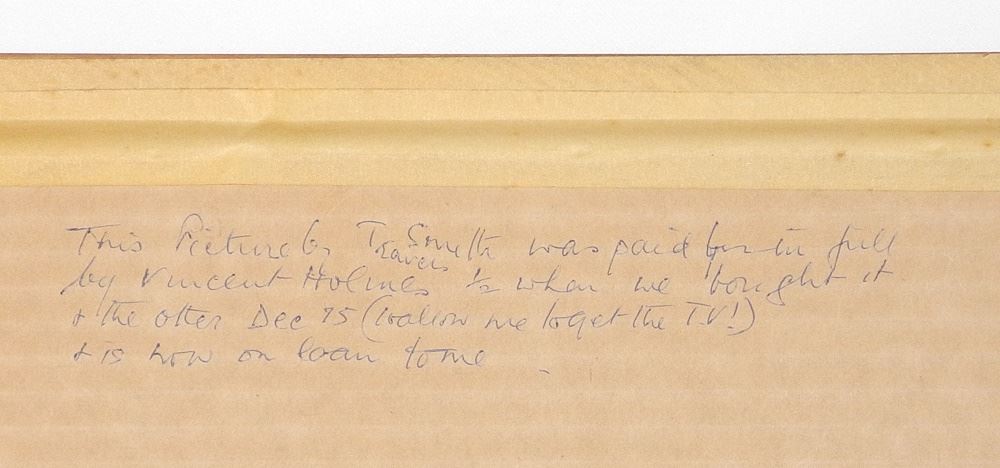 This Picture by Travers Smith was paid for in full
by Vincent Holmes ½ when we bought it
& the other Dec 75 (to allow me to get the T.V!)
& is now on loan to me